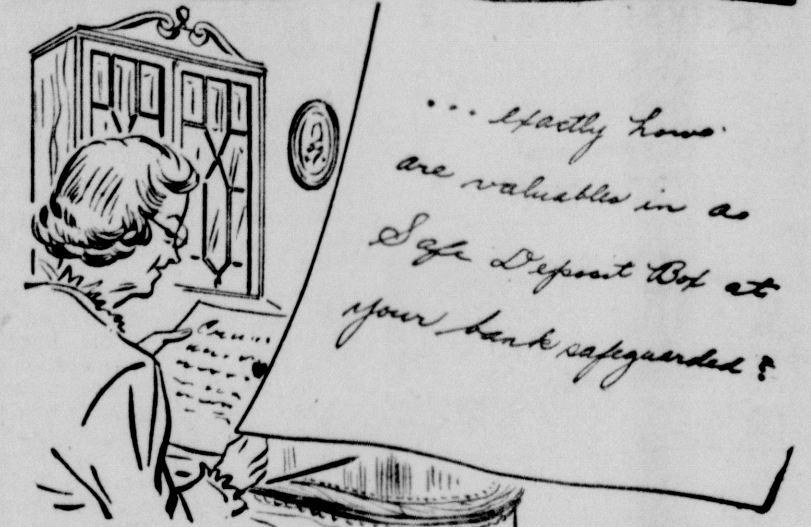 ... exactly how
are valuables in a
Safe Deposit Box at
your bank safeguarded?